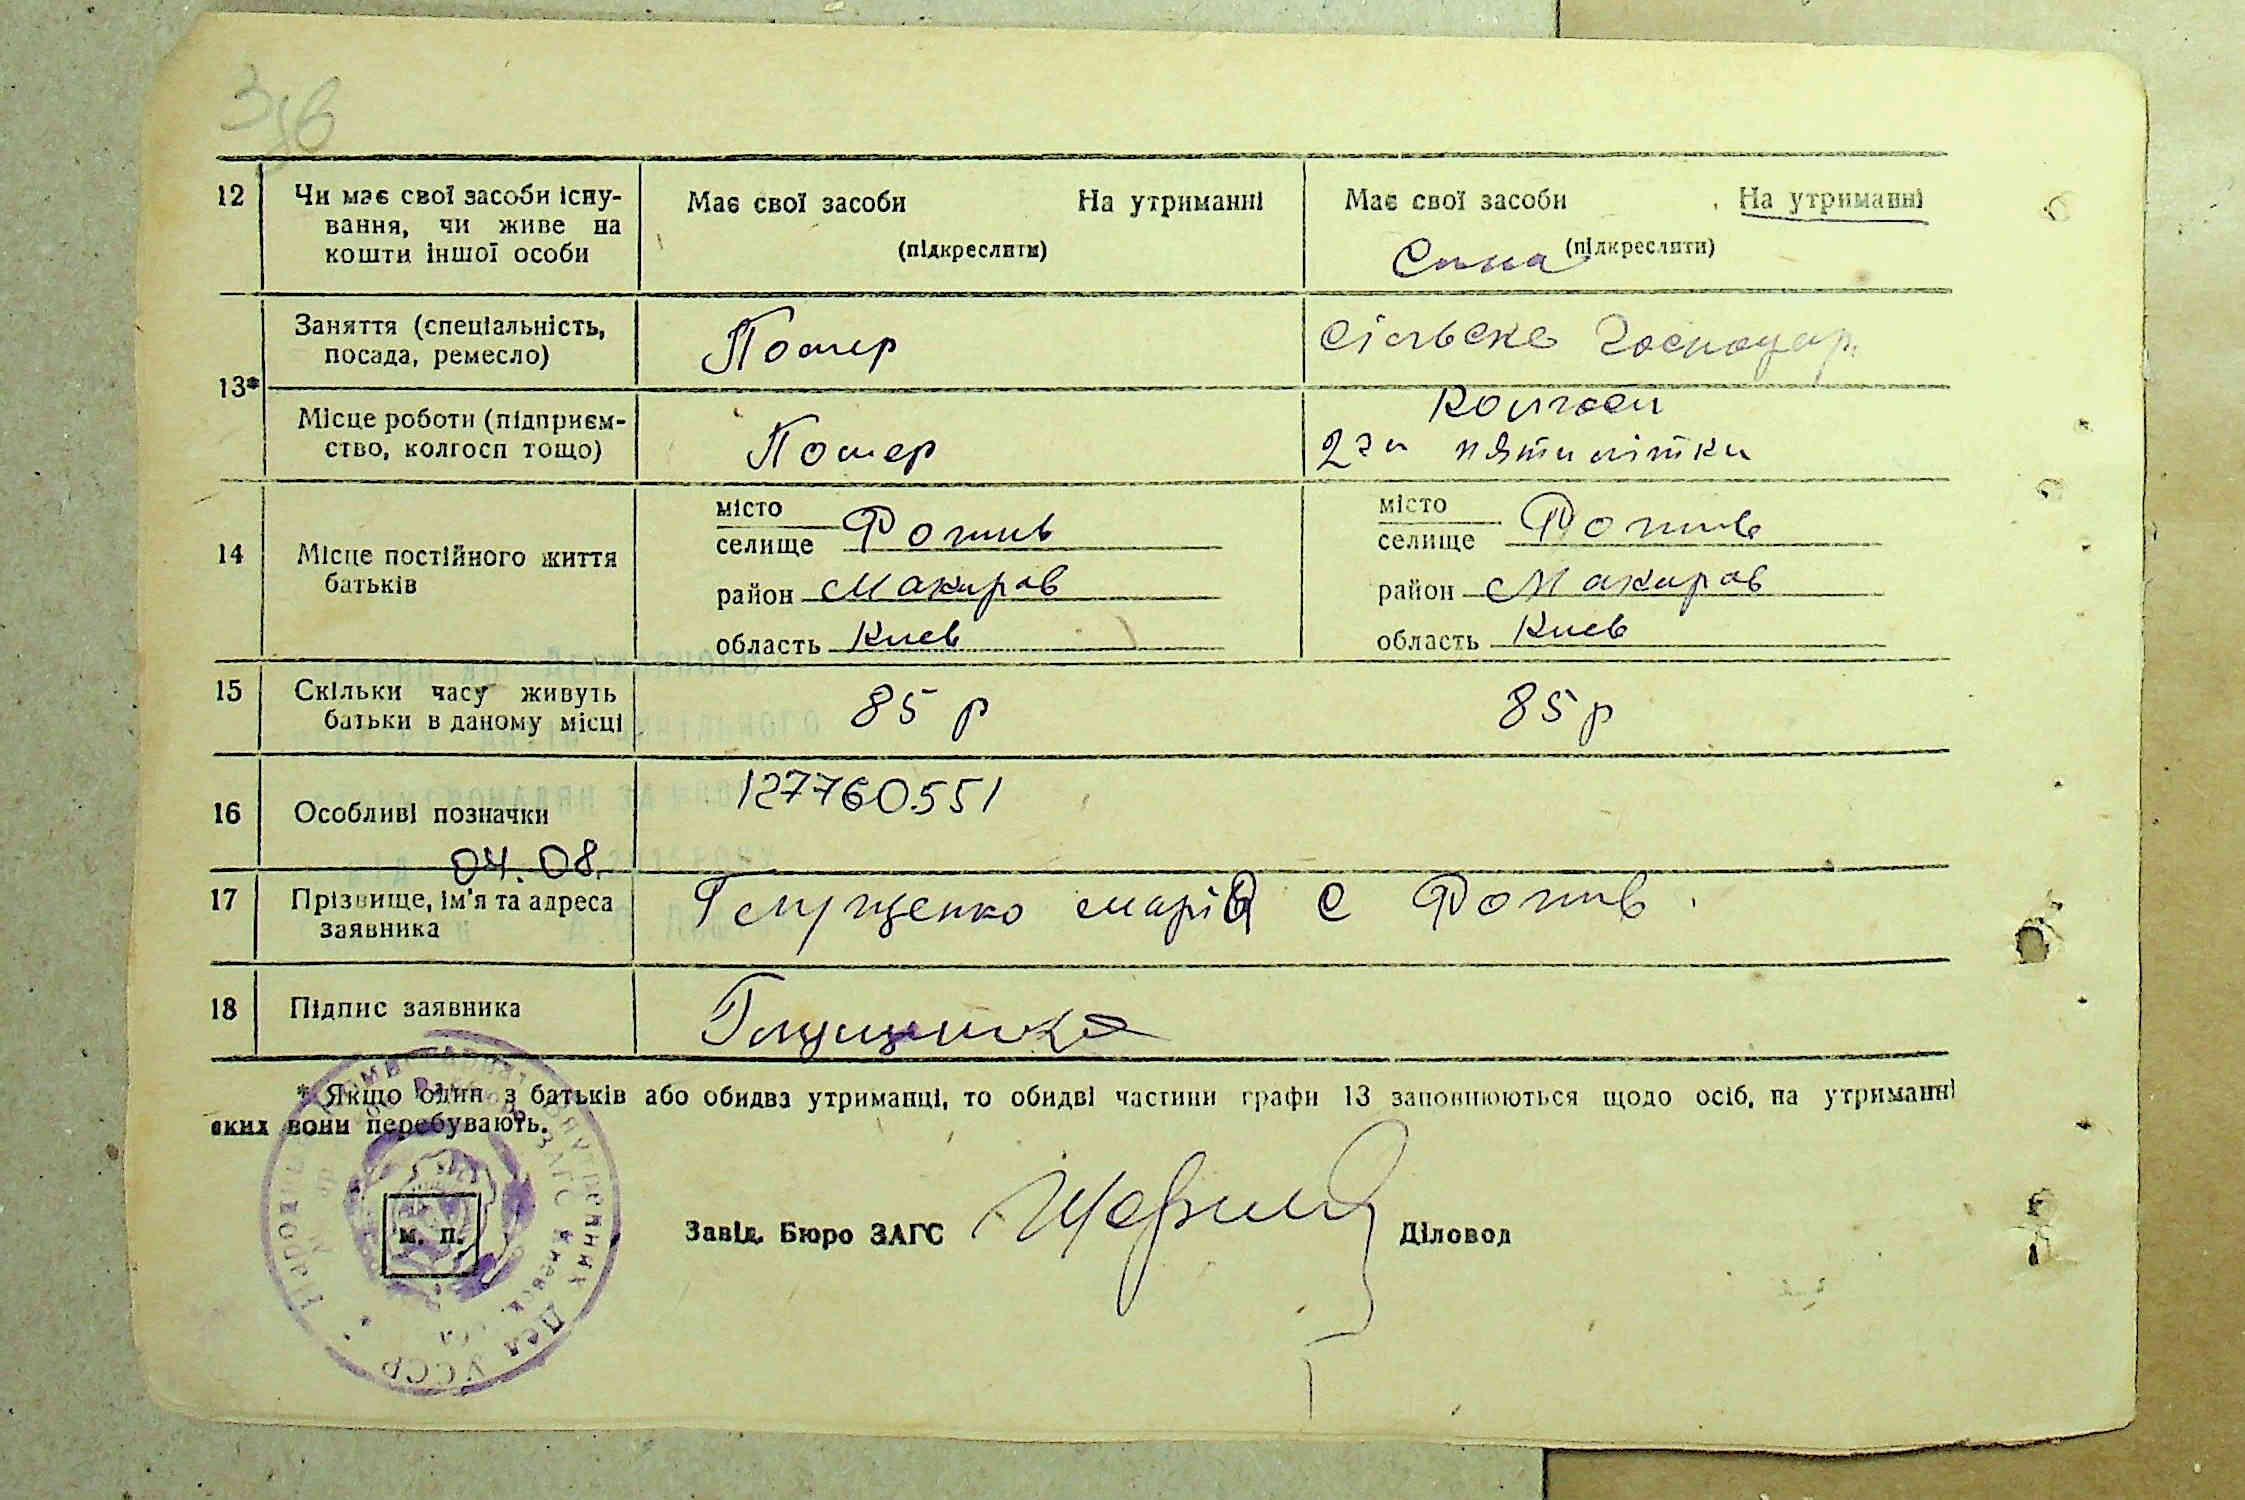 12 Чи має свої засоби існу-
вання, чи живе на
кошти іншої особи
Має свої засоби На утриманні
(підкреслити)
Має свої засоби На утриманні
(підкреслити)
Сина
13*
Заняття (спеціальність,
посада, ремесло)
Помер
сільське господар.
Місце роботи (підприєм-
ство, колгосп тощо)
Помер
Колгосп
2 га пятилітки
14 Місце постійного життя
батьків
місто
селище Фотив
район Макаров
область Киев
місто
селище Фотив
район Макаров
область Киев
15 Скільки часу живуть
батьки в даному місці
85 р
85 р
16 Особливі позначки
127760551
04.08.
17 Прізвище, ім'я та адреса
заявника
Глущенко марія с Фотив
18 Підпис заявника
* Якщо один з батьків або обидва утриманці, то обидві частини графи 13 заповнюються щодо осіб, на утриманні
яких вони перебувають.
м. п.
Завід. Бюро ЗАГС Діловод